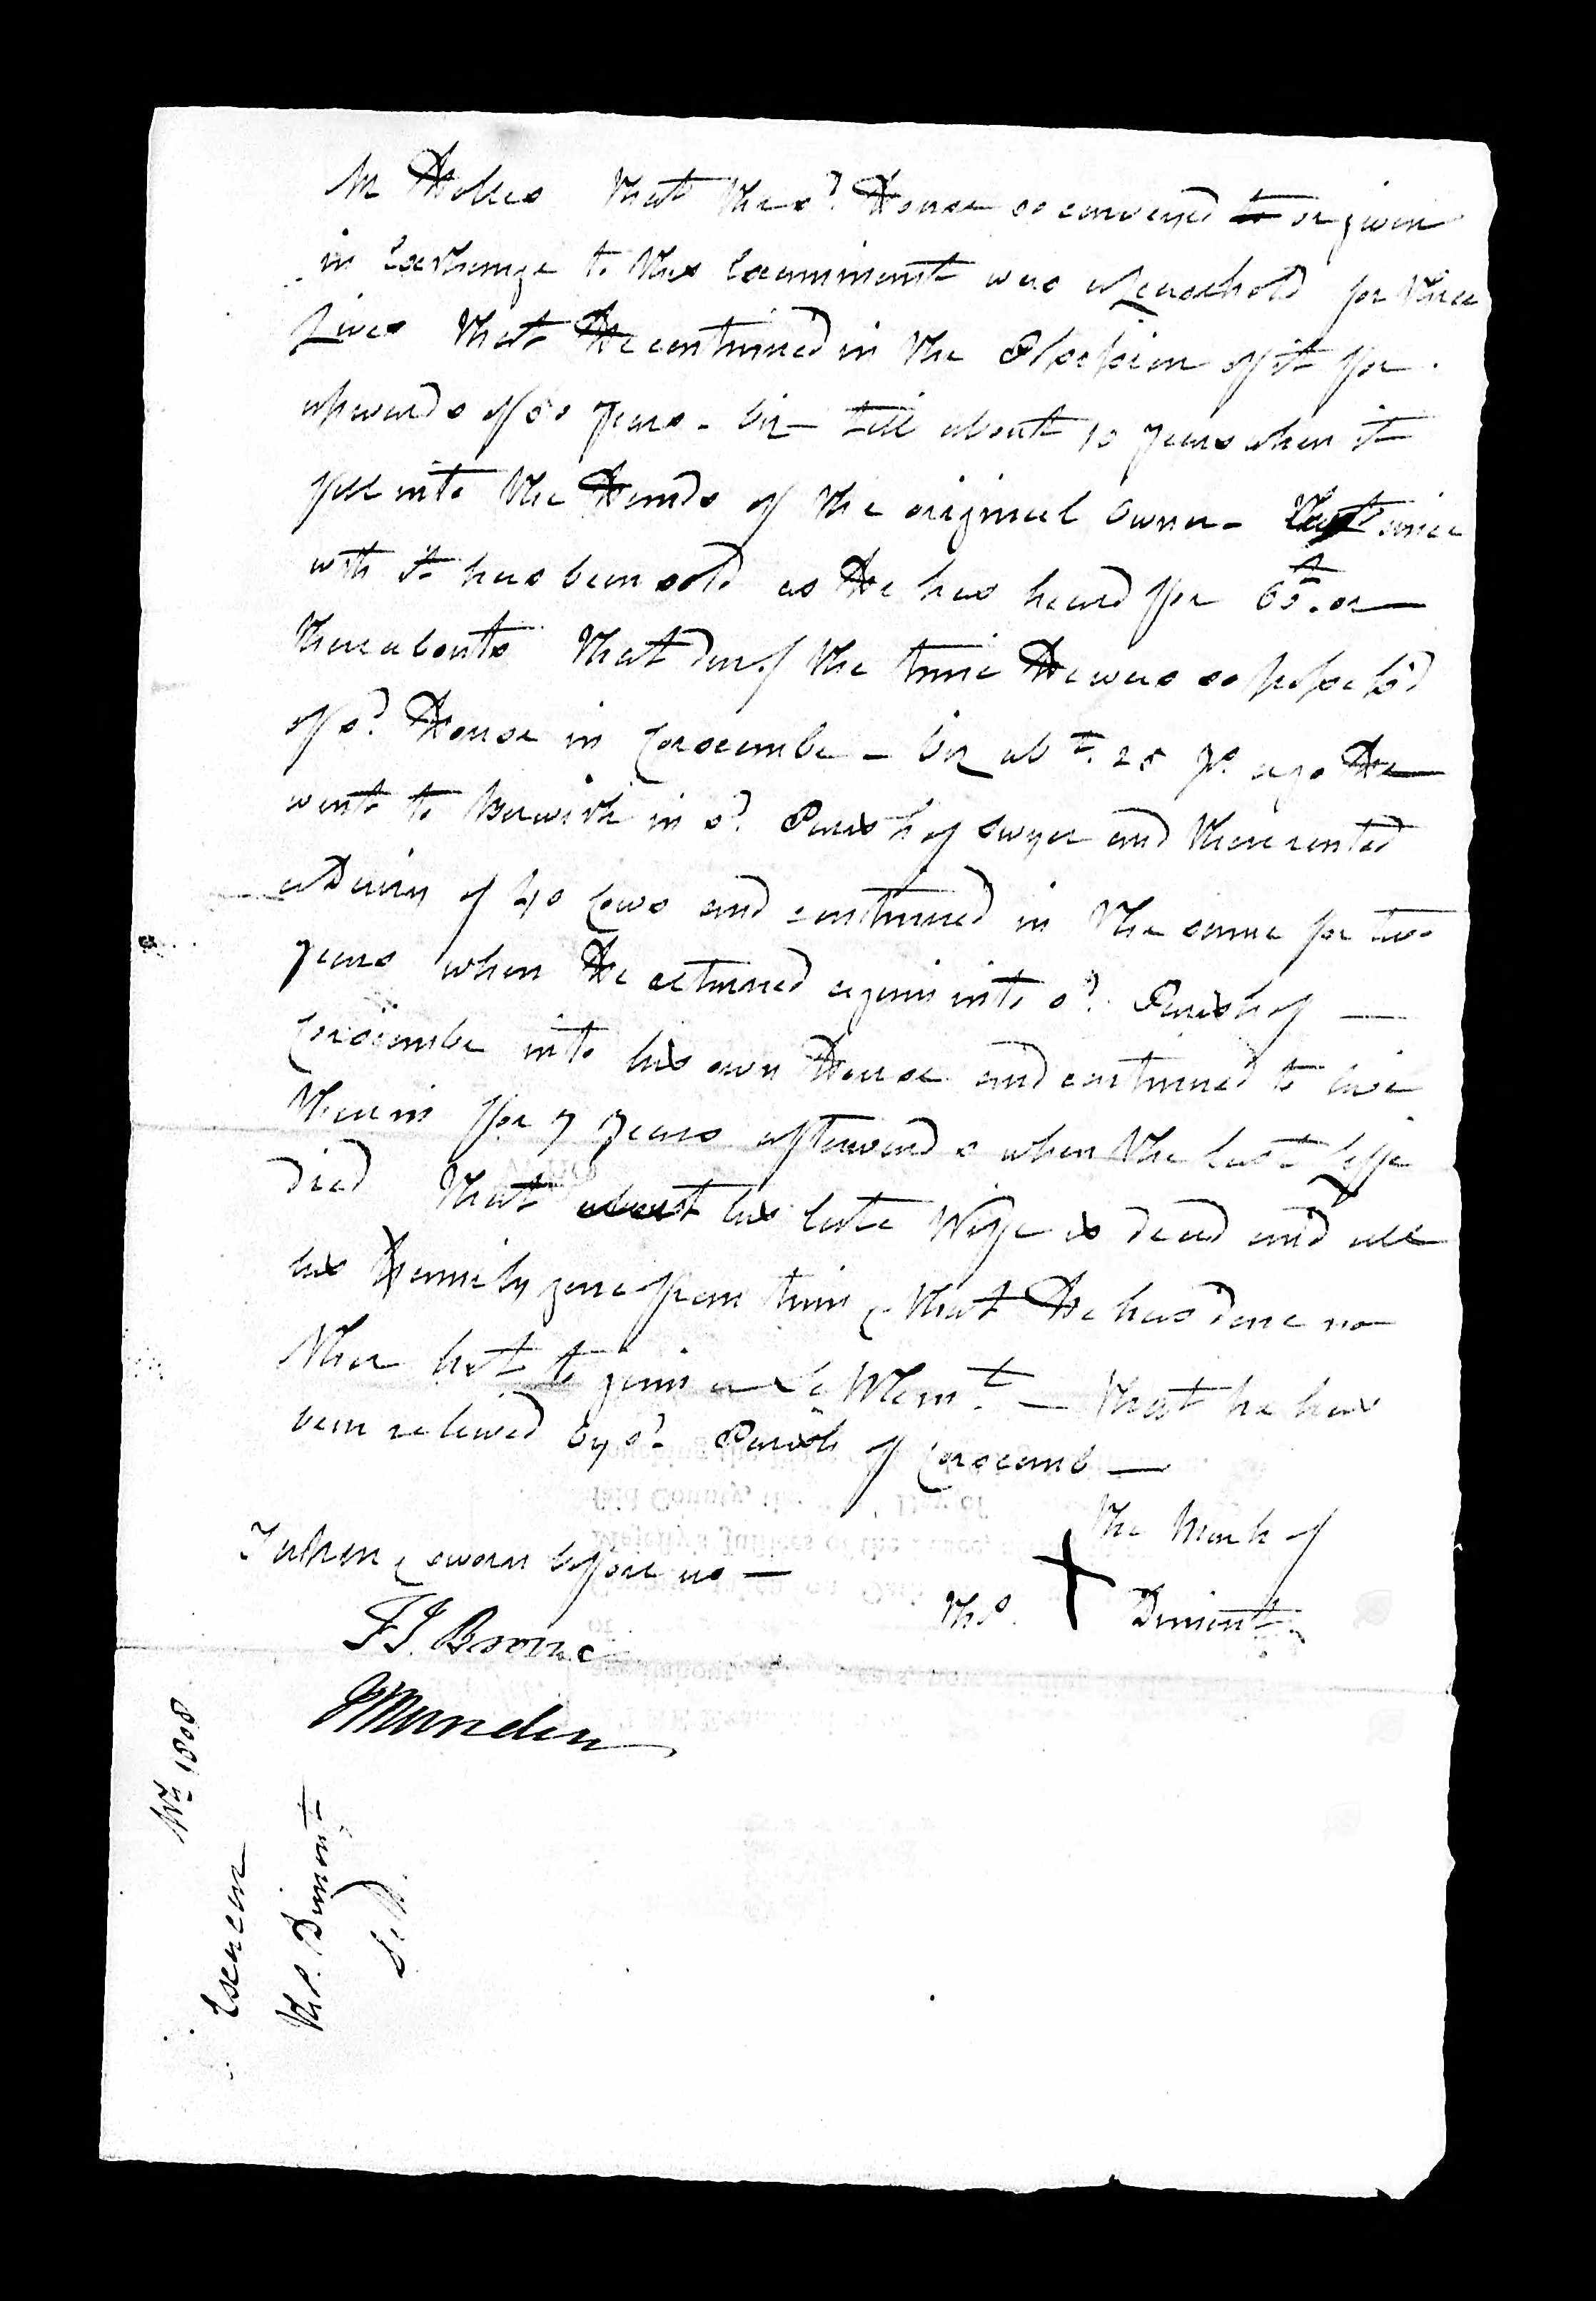 Mr Wolles that the sd. House so conveyed to or given
in Exchange to this Examinant was a Leasehold for three
Lives That He continued in the Possession of it for
upwards of 50 years - viz - till about 10 years when it
fell into the Hands of the original Owner - That since
wch it has been sold as He has heard for 60£. or
thereabouts That durg the time He was so possess'd
of sd. House in Corscombe - viz abt. 25 ys. ago He
went to Berwick in sd. Parish of Swyer and there rented
a Dairy of 40 Cows and continued in the same for two
years when He returned again into sd. Parish of
Corscombe into his own House and continued to live
therein for 7 years afterwards when the last Life
died That about his late Wife is dead and all
his Family gone from him & that He has done no
other Act to gain a Settlemt. - That he has
been relieved by sd. Parish of Corscomb
Taken & sworn before us
The Mark of
Ths. + Diment
F J. Browne
J Munden
1808
Exacon
Ths. Diment
Sett